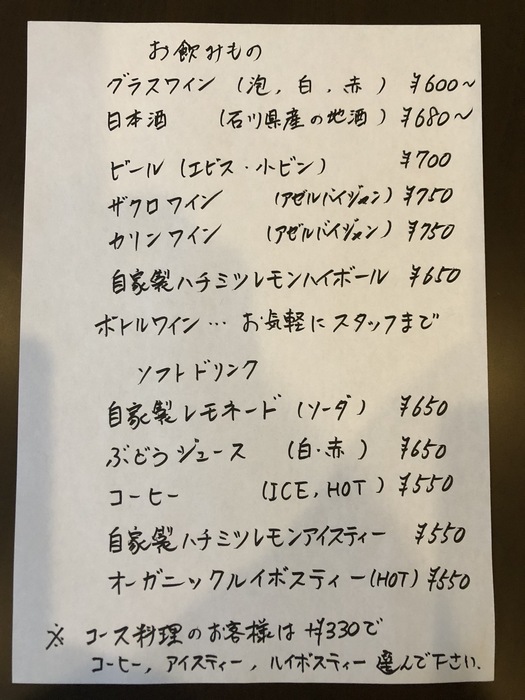 お飲みもの
グラスワイン (泡, 白, 赤) ¥600~
日本酒 (石川県産の地酒) ¥680~
ビール (エビス・小ビン) ¥700
ザクロワイン (アゼルバイジャン) ¥750
カリンワイン (アゼルバイジャン) ¥750
自家製ハチミツレモンハイボール ¥650
ボトルワイン… お気軽にスタッフまで
ソフトドリンク
自家製レモネード (ソーダ) ¥650
ぶどうジュース (白・赤) ¥650
コーヒー (ICE, HOT) ¥550
自家製ハチミツレモンアイスティー ¥550
オーガニックルイボスティー(HOT) ¥550
※ コース料理のお客様は +¥330で
コーヒー, アイスティー, ルイボスティー 選んで下さい.